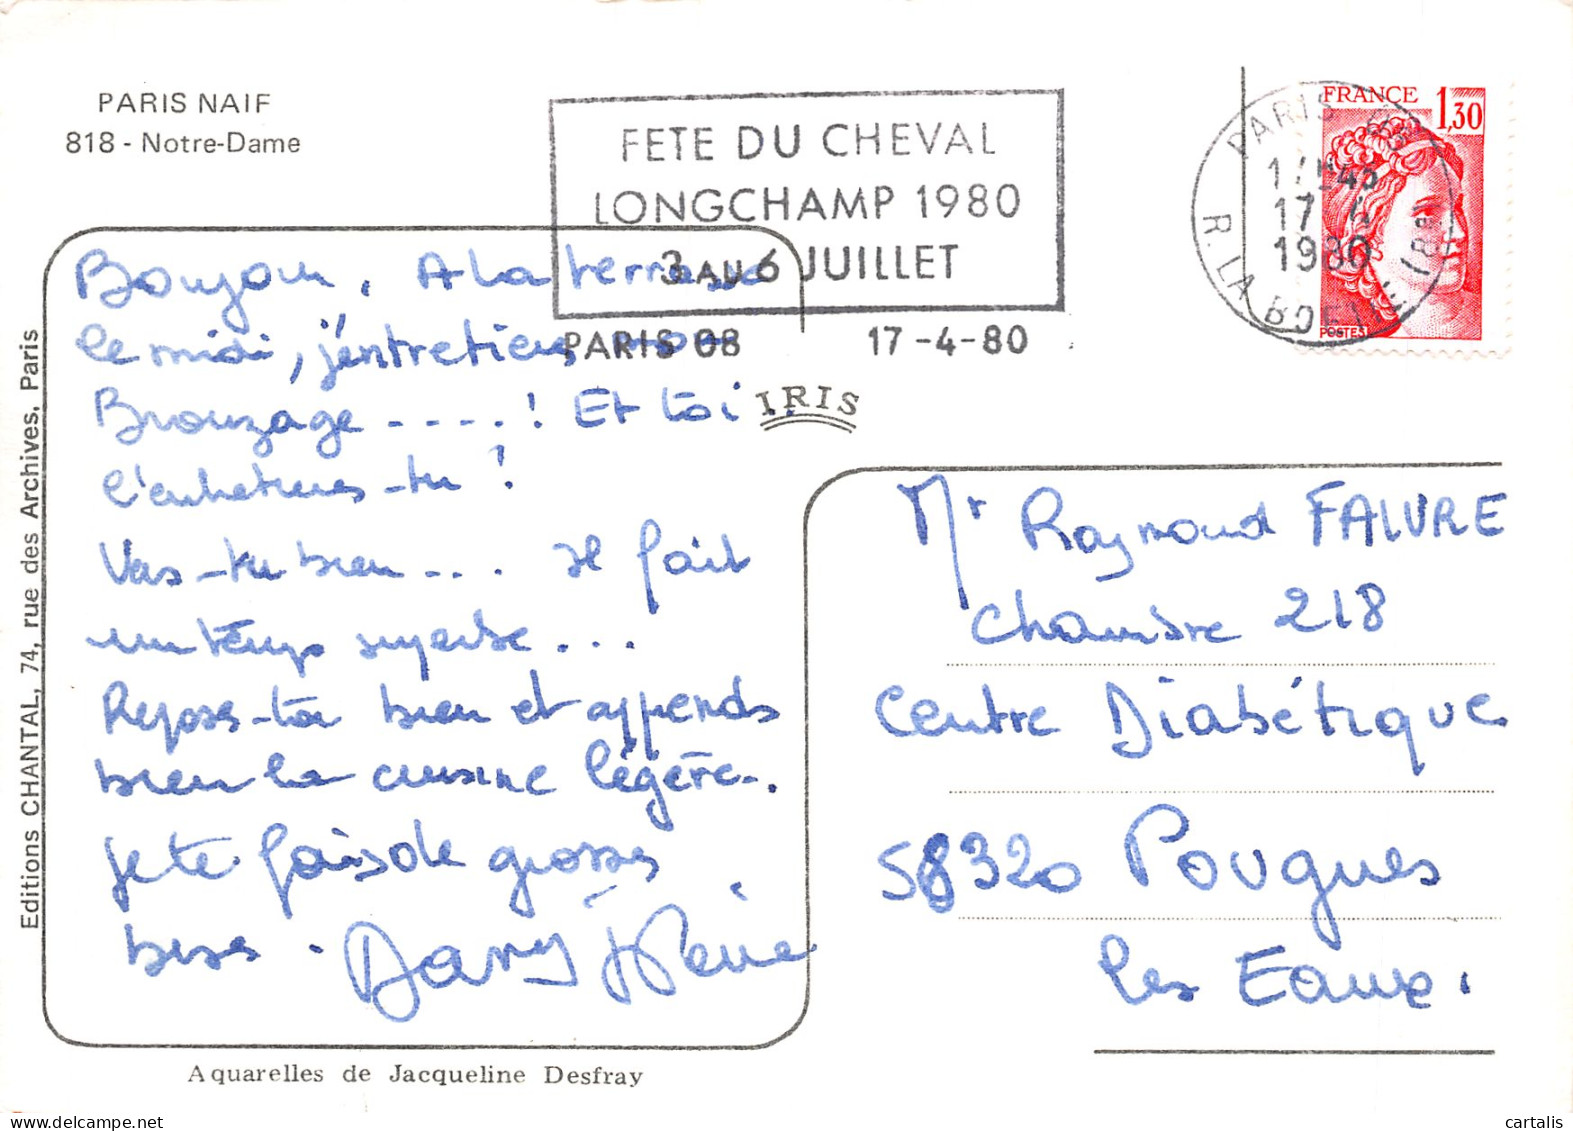 PARIS NAIF
818 - Notre-Dame
FETE DU CHEVAL
LONGCHAMP 1980
3 AU 6 JUILLET
PARIS 08 17-4-80
PARIS
17
1980
R. LA BOETIE (8e)
FRANCE 1,30
POSTES
IRIS
Editions CHANTAL, 74, rue des Archives, Paris
Bonjour. A la terrasse
le midi, j'entretiens mon
Bronzage ----! Et toi..
l'entretiens-tu !
Vas-tu bien... Il fait
un temps superbe...
Repose-toi bien et apprends
bien la cuisine légère.
je te fais de grosses
bises.
Dany
Mr Raymond FAIVRE
Chambre 218
Centre Diabétique
58320 Pougues
les Eaux.
Aquarelles de Jacqueline Desfray
cartalis
delcampe.net